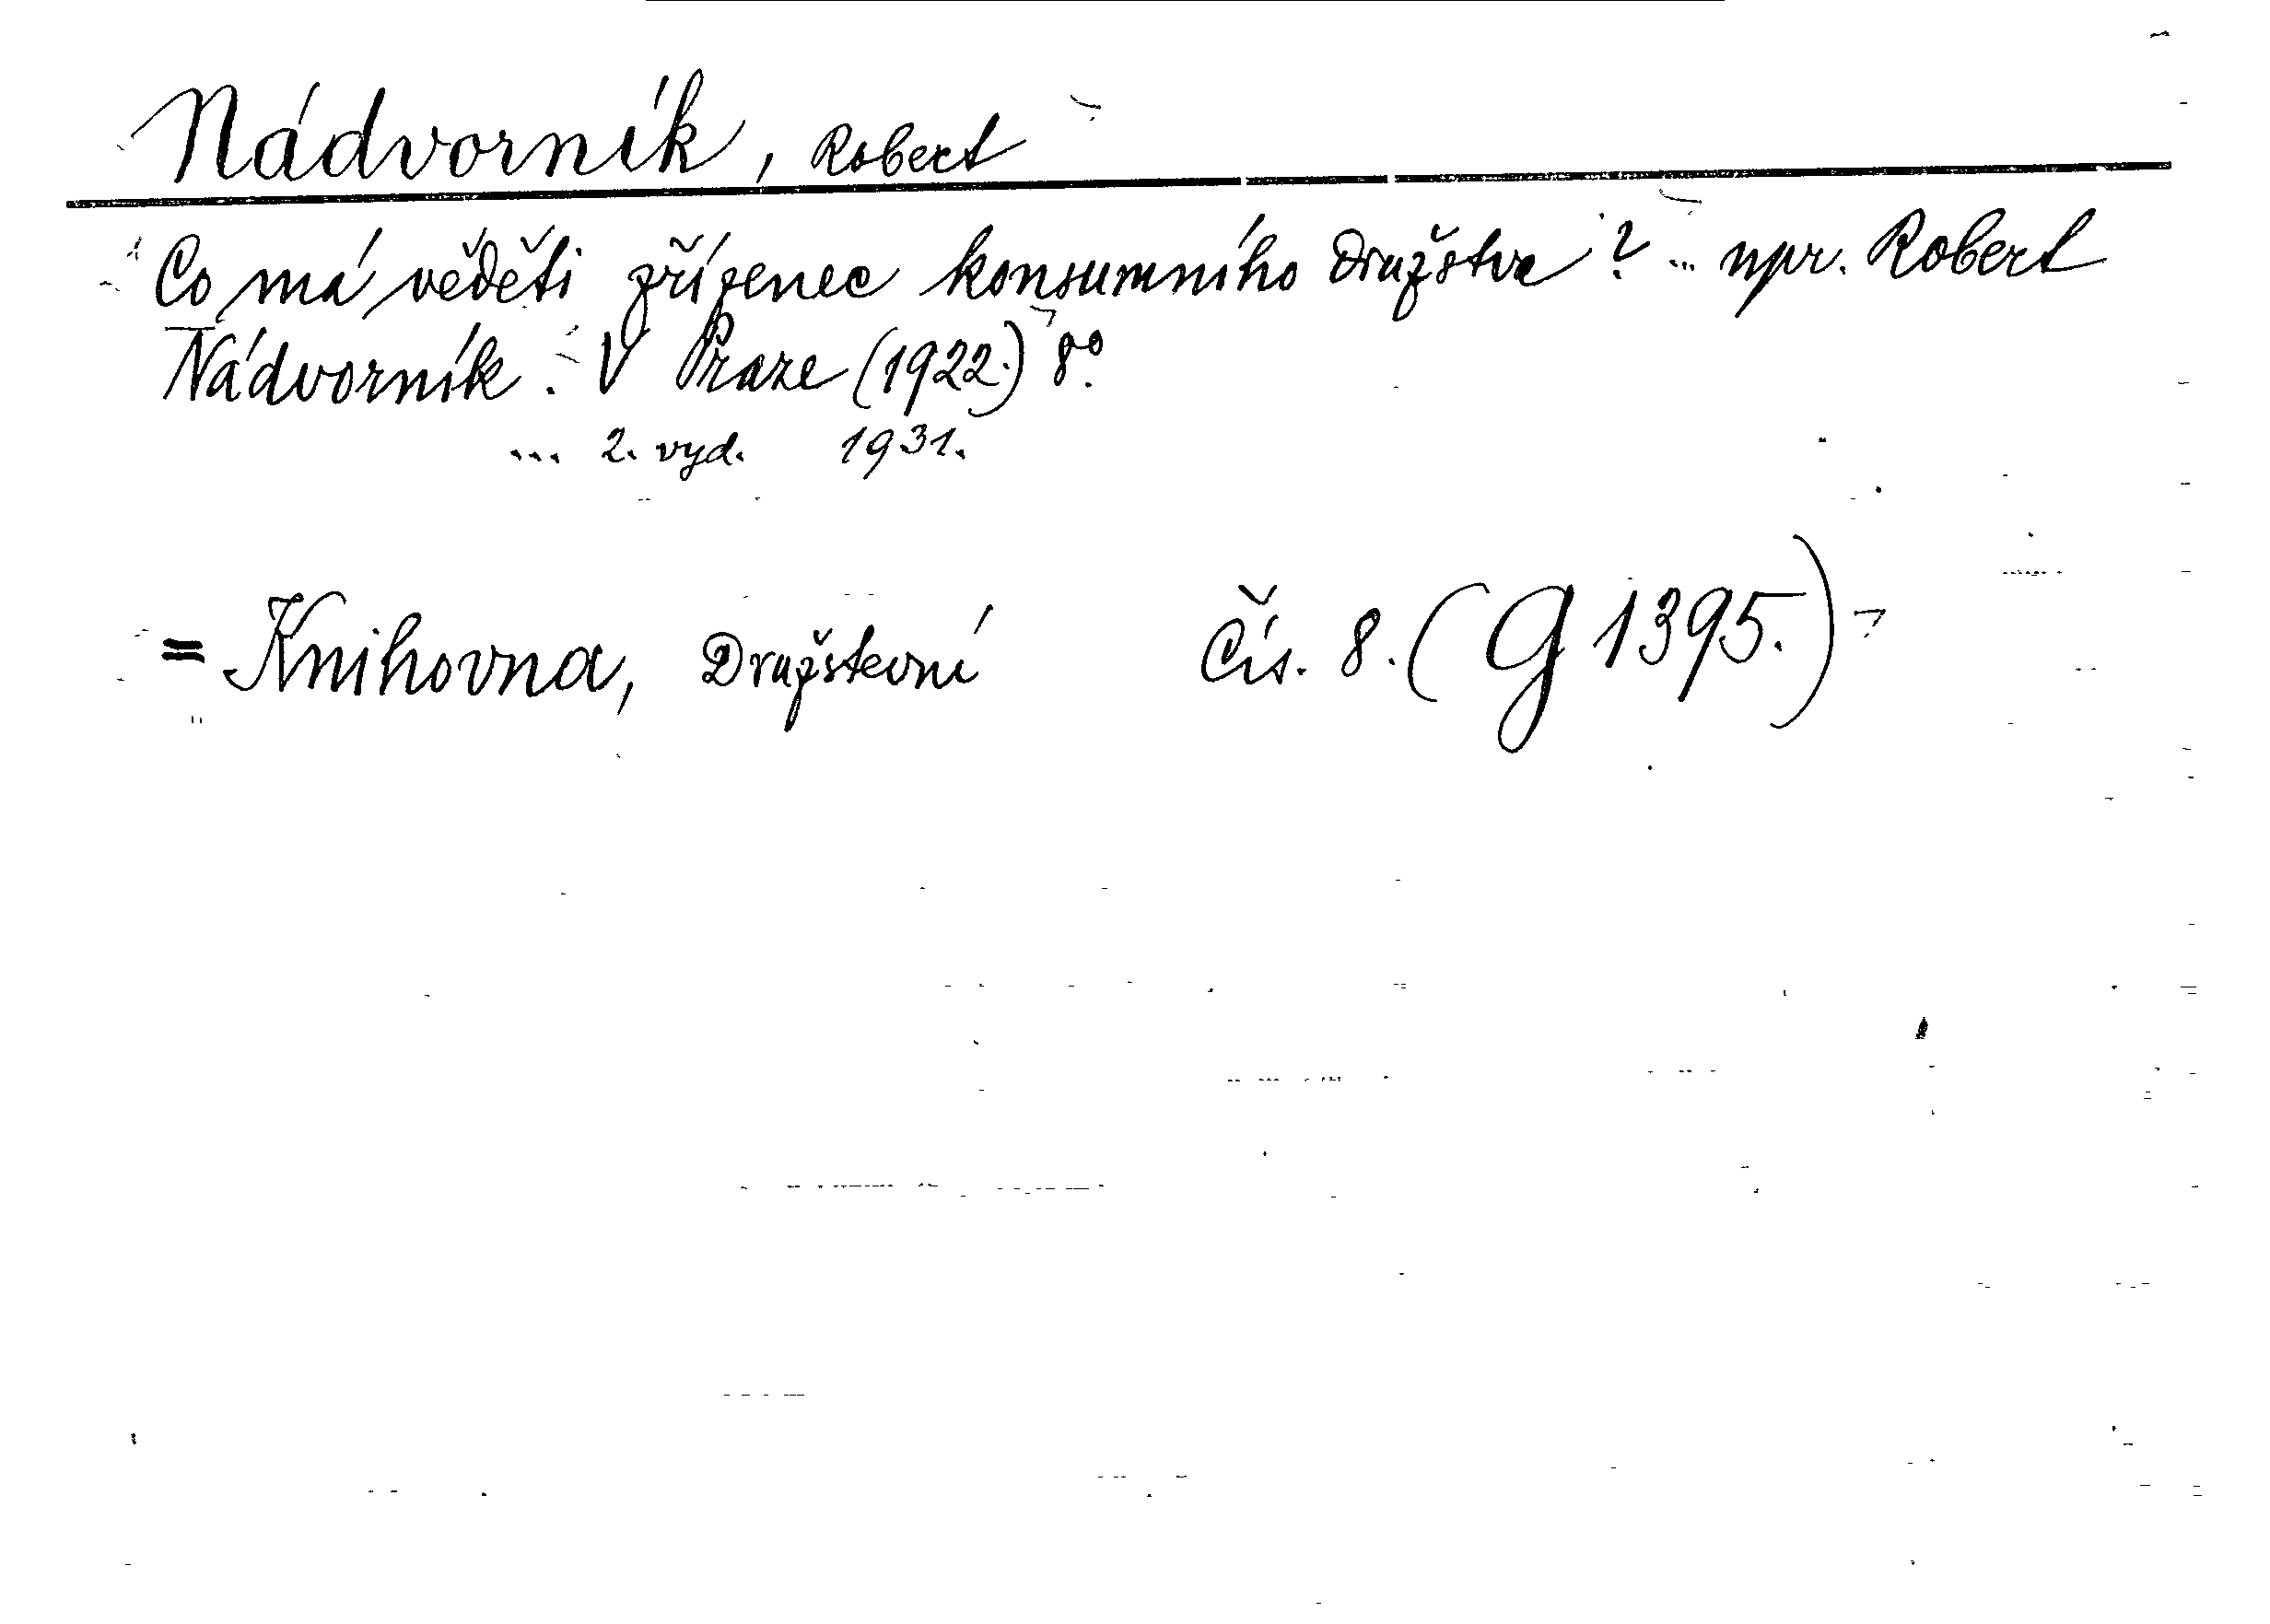 Nádvorník, Robert
Co má věděti zřízenec konsumního družstva? ... upr. Robert
Nádvorník. V Praze (1922.) 8º.
... 2. vyd. 1931.
= Knihovna, Družstevní Čís. 8. (G 1395.)